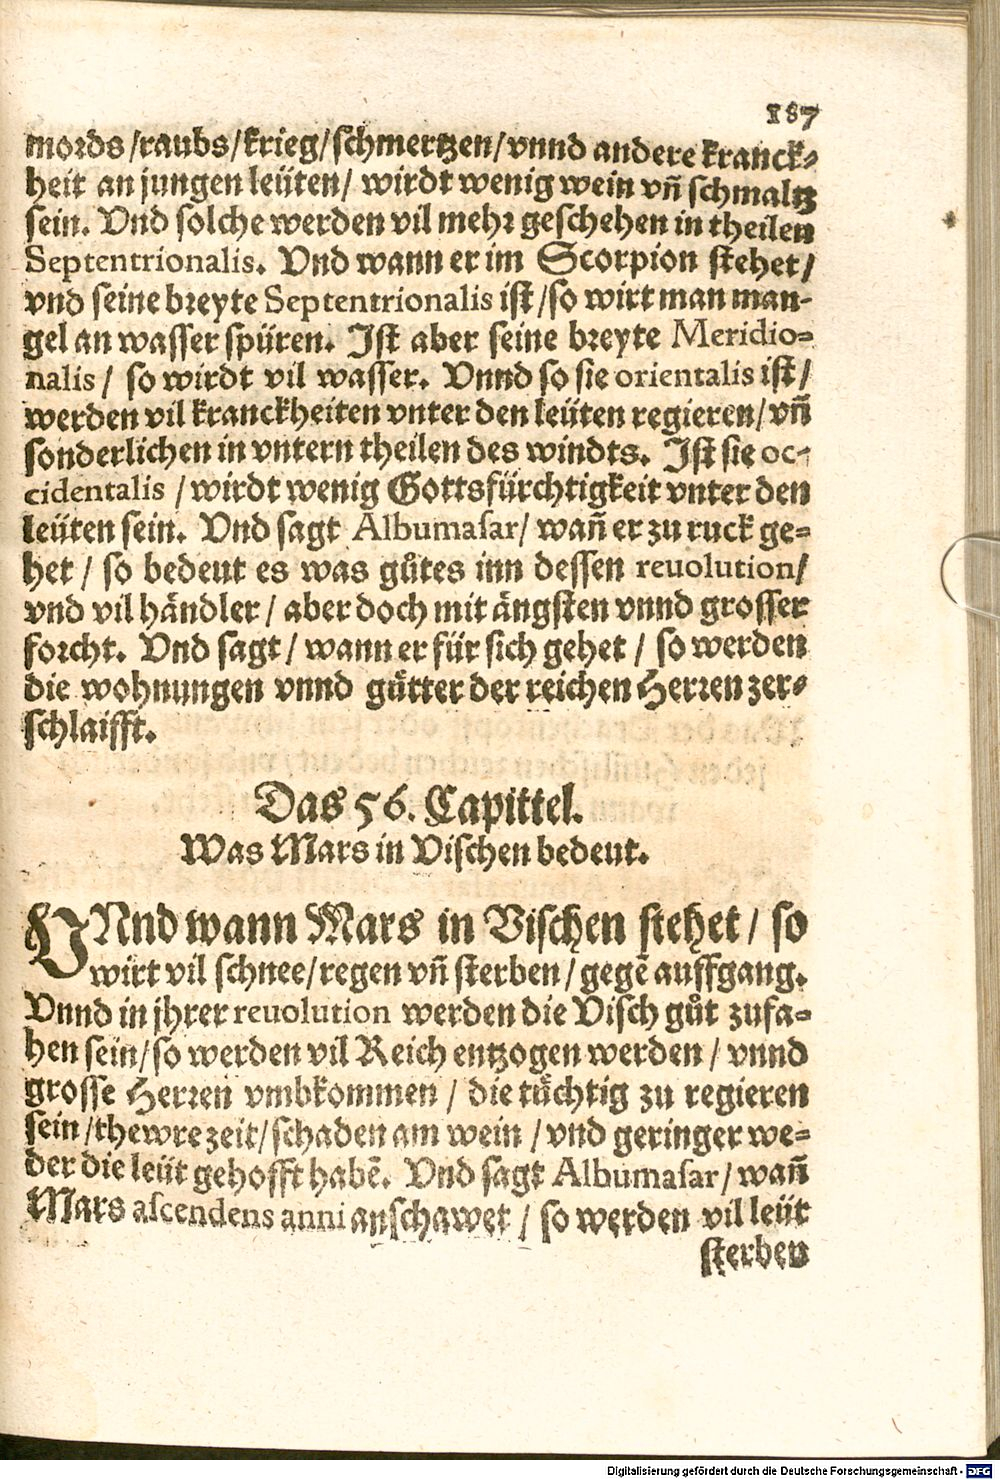 187
mords / raubs / krieg / schmertzen / vnnd andere kranck-
heit an jungen leüten / wirdt wenig wein vñ schmaltz
sein. Vnd solche werden vil mehr geschehen in theilen
Septentrionalis. Vnd wann er im Scorpion stehet /
vnd seine breyte Septentrionalis ist / so wirt man man-
gel an wasser spüren. Ist aber seine breyte Meridio-
nalis / so wirdt vil wasser. Vnnd so sie orientalis ist /
werden vil kranckheiten vnter den leüten regieren / vñ
sonderlichen in vntern theilen des windts. Ist sie oc-
cidentalis / wirdt wenig Gottsfürchtigkeit vnter den
leüten sein. Vnd sagt Albumasar / wañ er zu ruck ge-
het / so bedeut es was gůtes inn dessen reuolution /
vnd vil händler / aber doch mit ängsten vnnd grosser
forcht. Vnd sagt / wann er für sich gehet / so werden
die wohnungen vnnd gütter der reichen Herren zer-
schlaifft.
Das 56. Capittel.
Was Mars in Vischen bedeut.
VNnd wann Mars in Vischen stehet / so
wirt vil schnee / regen vñ sterben / gegẽ auffgang.
Vnnd in jhrer reuolution werden die Visch gůt zufa-
hen sein / so werden vil Reich entzogen werden / vnnd
grosse Herren vmbkommen / die tüchtig zu regieren
sein / thewre zeit / schaden am wein / vnd geringer we-
der die leüt gehofft habẽ. Vnd sagt Albumasar / wañ
Mars ascendens anni anschawet / so werden vil leüt
sterben
Digitalisierung gefördert durch die Deutsche Forschungsgemeinschaft - DFG